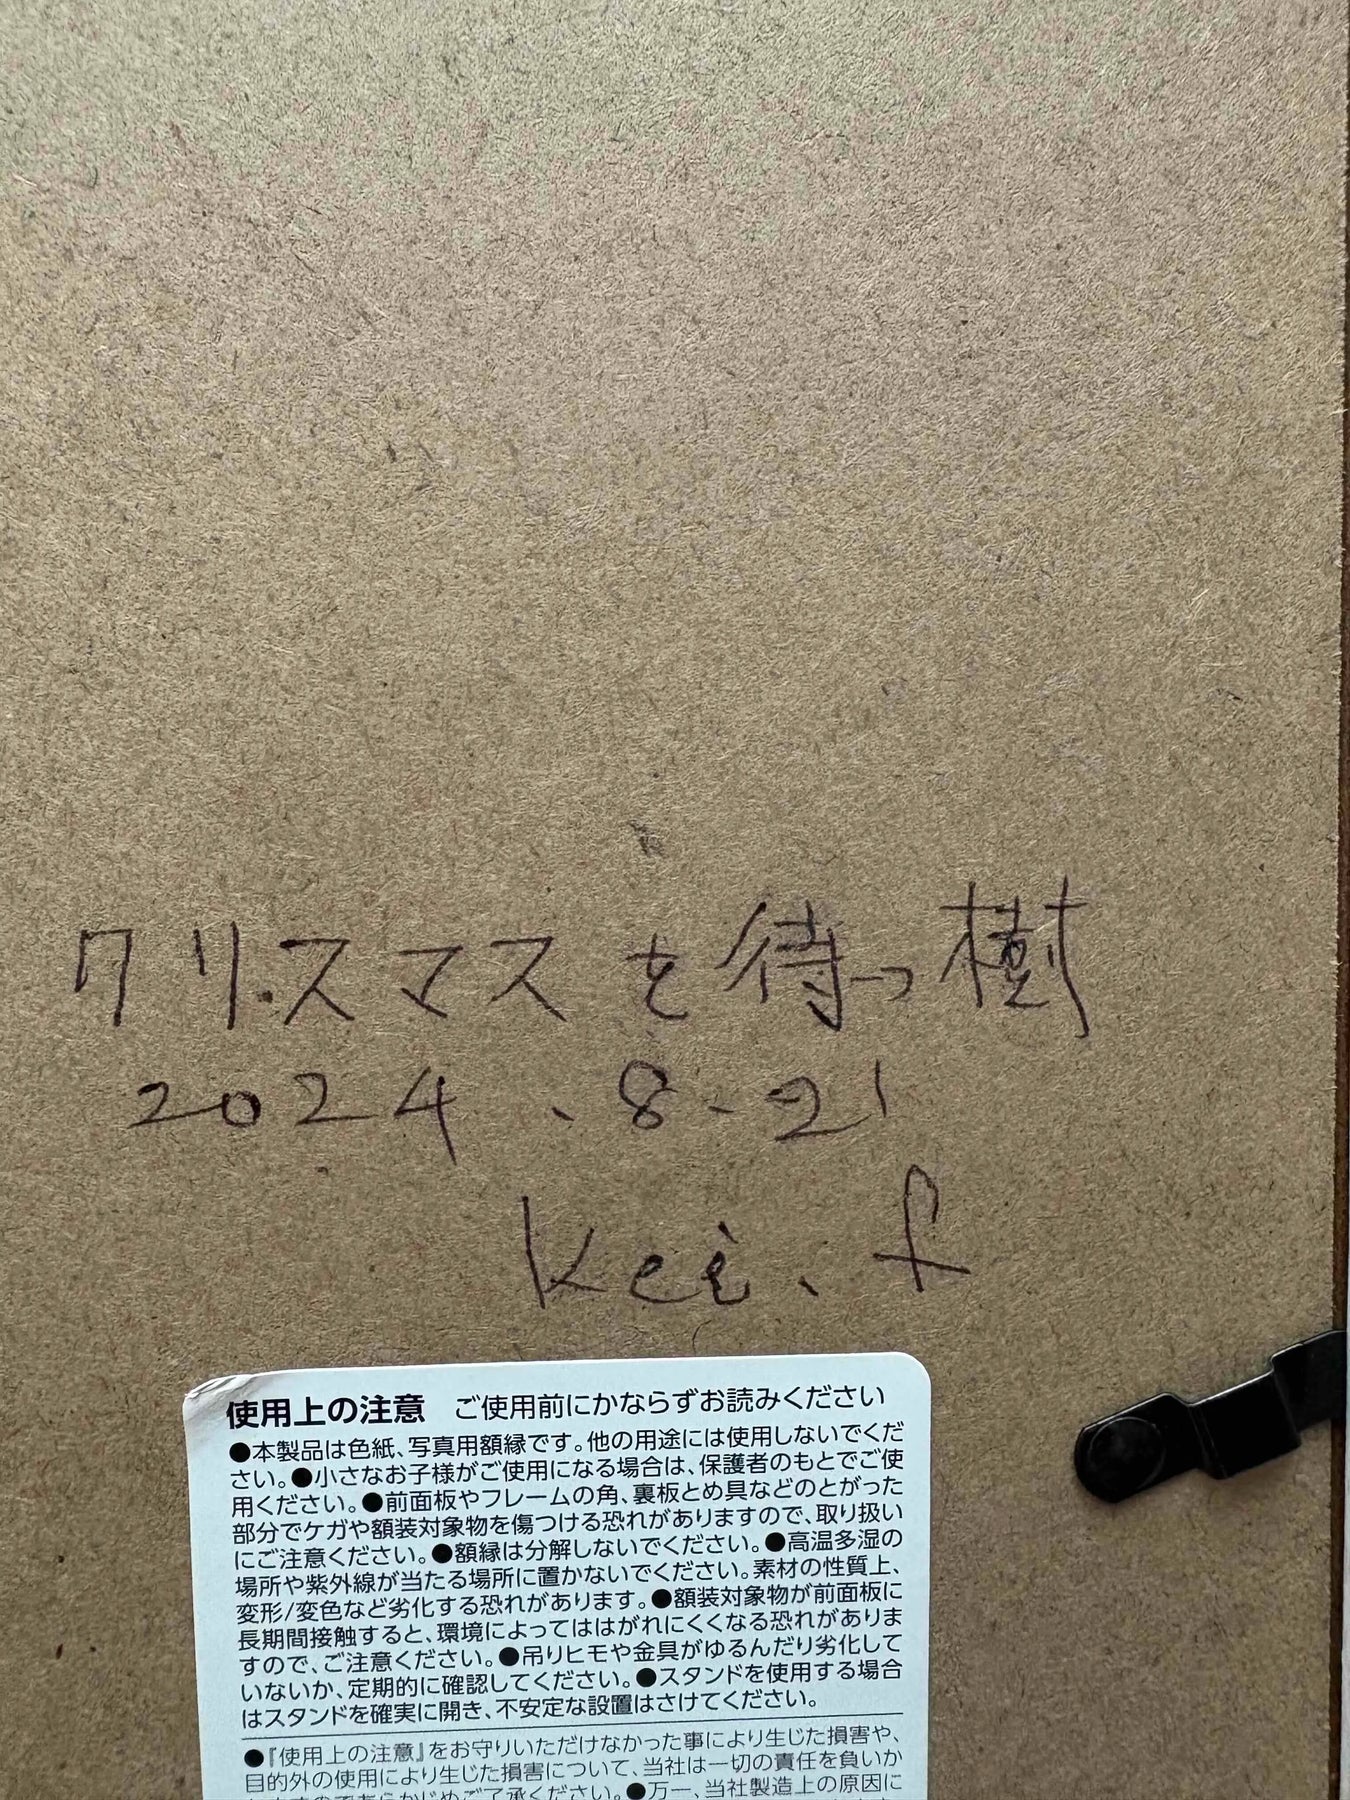 クリスマスを待つ樹
2024.8.21
Kei.f
使用上の注意 ご使用前にかならずお読みください
●本製品は色紙、写真用額縁です。他の用途には使用しないでくだ
さい。●小さなお子様がご使用になる場合は、保護者のもとでご使
用ください。●前面板やフレームの角、裏板とめ具などのとがった
部分でケガや額装対象物を傷つける恐れがありますので、取り扱い
にご注意ください。●額縁は分解しないでください。●高温多湿の
場所や紫外線が当たる場所に置かないでください。素材の性質上、
変形/変色など劣化する恐れがあります。●額装対象物が前面板に
長期間接触すると、環境によってははがれにくくなる恐れがありま
すので、ご注意ください。●吊りヒモや金具がゆるんだり劣化して
いないか、定期的に確認してください。●スタンドを使用する場合
はスタンドを確実に開き、不安定な設置はさけてください。
●『使用上の注意』をお守りいただけなかった事により生じた損害や、
目的外の使用により生じた損害について、当社は一切の責任を負いか
●万一、当社製造上の原因に